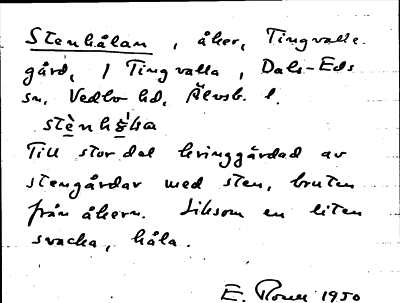 Stenhålan, åker, Tingvalla
gård, 1 Tingvalla, Dals-Eds
sn, Vedbo hd, Älvsb. l.
Till stor del kringgärdad av
stengärdar med sten, bruten
från åkern. Liksom en liten
svacka, håla.
E. 1950